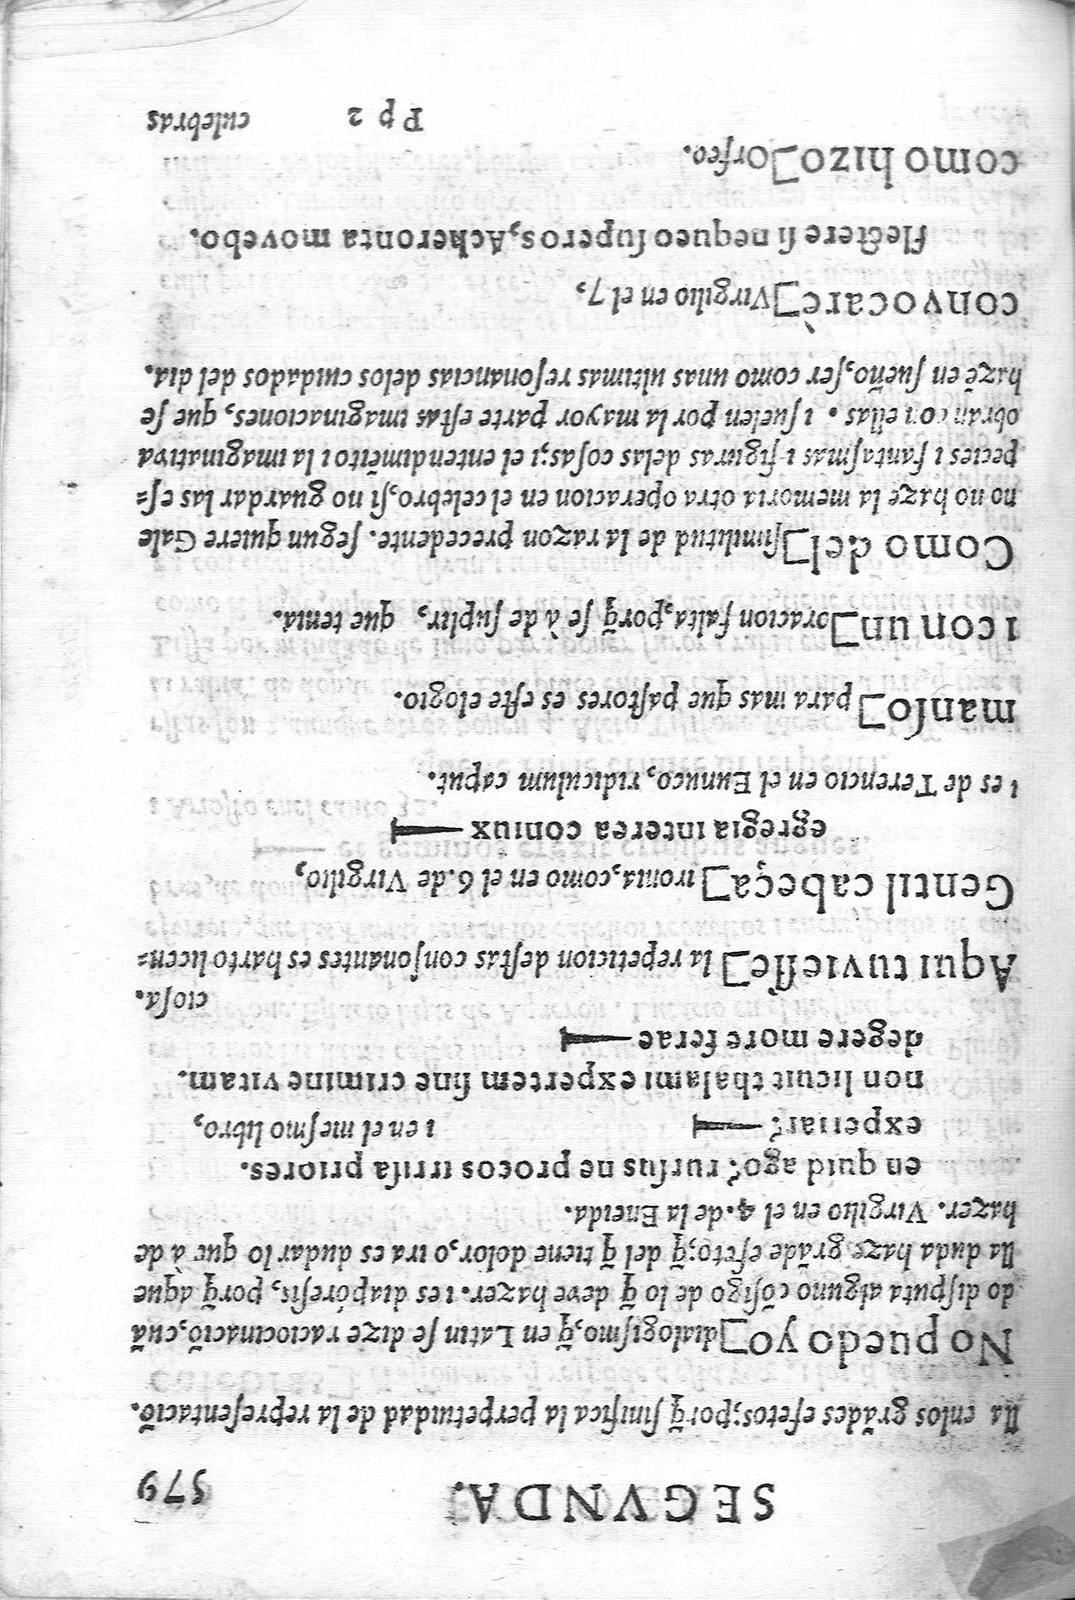 SEGVNDA. 579
lla enlos grãdes efetos; porq̃ sinifica la perpetuidad de la representació.
No puedo yo] dialogismo, q̃ en Latin se dize raciocinació, cuã
do disputa alguno cõsigo de lo q̃ deve hazer. i es diapóresis, porq̃ aque
lla duda haze grãde efeto; q̃ del q̃ tiene dolor, o ira es dudar lo que à de
hazer. Virgilio en el 4. de la Eneida.
en quid ago? rursus ne procos irrisa priores.
experiar? —— i en el mesmo libro,
non licuit thalami expertem sine crimine vitam.
degere more ferae ——
Aqui tuviesse] la repeticion destas consonantes es harto licen=
ciosa.
Gentil cabeça] ironia, como en el 6. de Virgilio,
egregia interea coniux ——
i es de Terencio en el Eunuco, ridiculum caput.
manso] para mas que pastores es este elogio.
i con un] oracion falta, porq̃ se à de suplir, que tenia.
Como del] similitud de la razon precedente. segun quiere Gale
no no haze la memoria otra operacion en el celebro, si no guardar las es=
pecies i fantasmas i figuras delas cosas; i el entendimiẽto i la imaginativa
obran con ellas. i suelen por la mayor parte estas imaginaciones, que se
hazẽ en sueño, ser como unas ultimas resonancias delos cuidados del dia.
convocarè] Virgilio en el 7,
flectere si nequeo superos, Acheronta movebo.
como hizo] Orfeo.
Pp 2 culebras